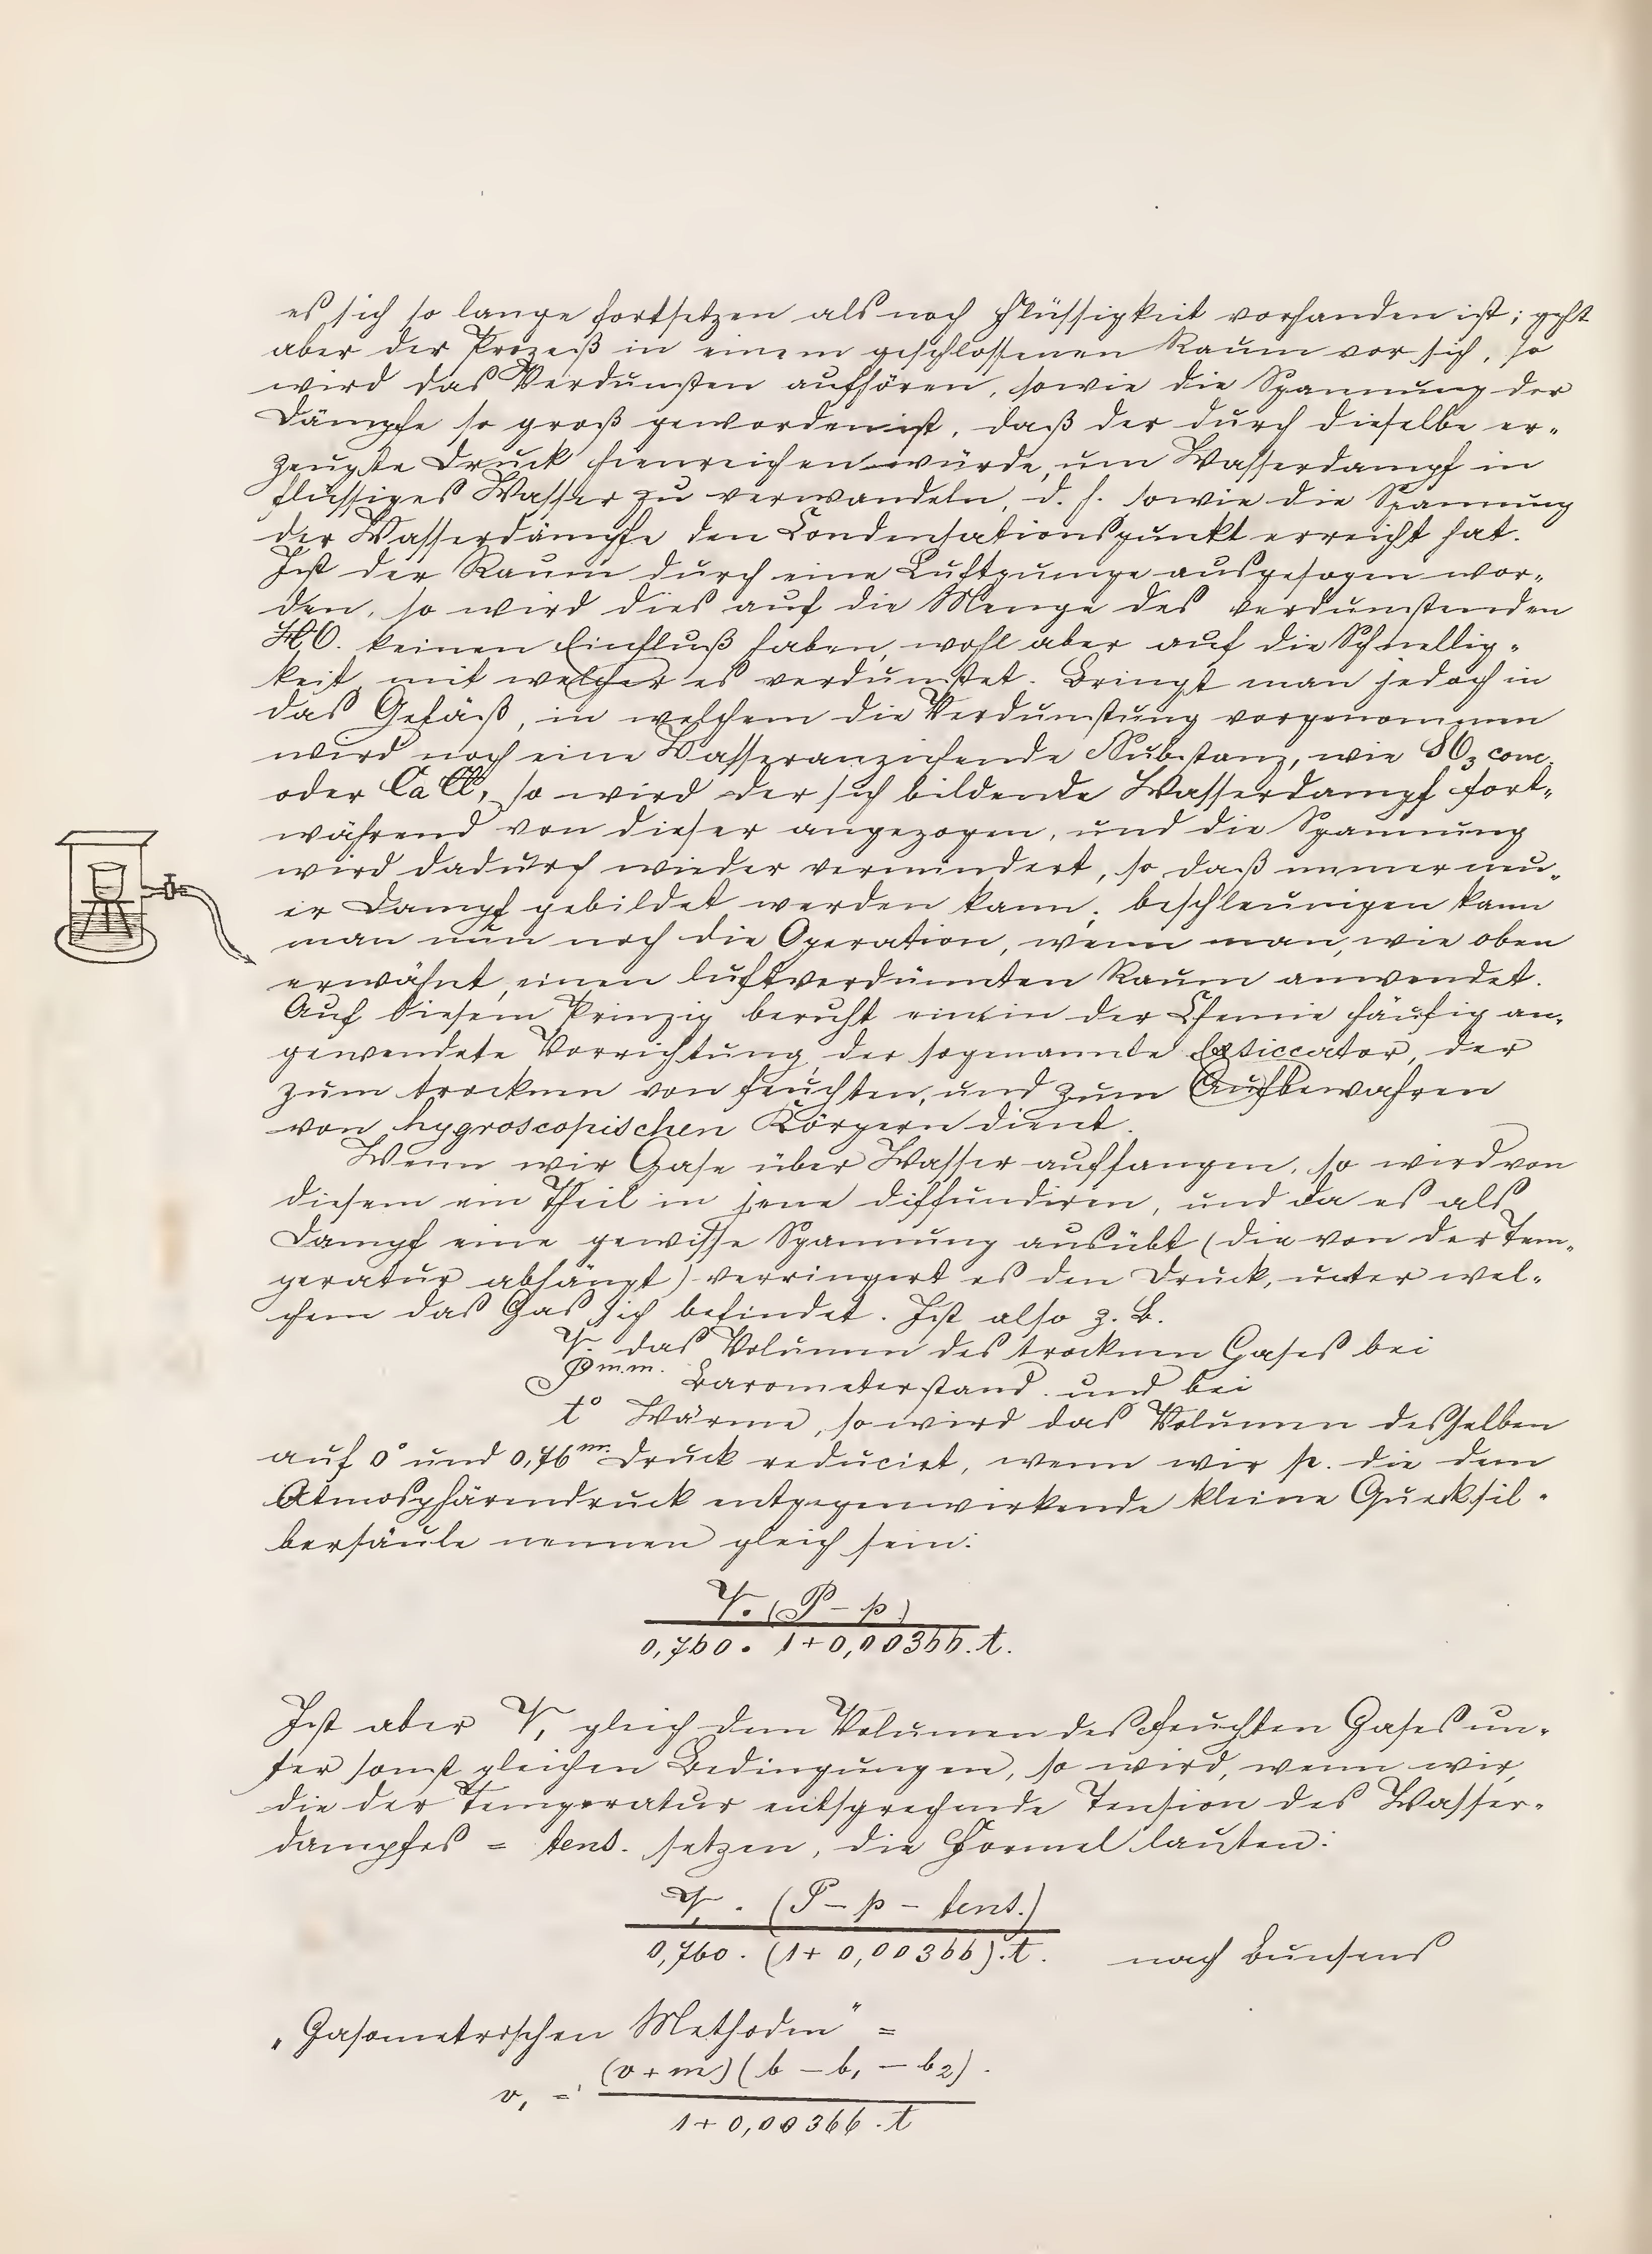 es sich so lange fortsetzen als noch Flüssigkeit vorhanden ist; geht
aber der Prozeß in einem geschlossenen Raum vor sich, so
wird das Verdunsten aufhören, sowie die Spannung der
Dämpfe so groß geworden ist, daß der durch dieselbe er-
zeugte Druck hienreichen würde, um Wasserdampf in
flüssiges Wasser zu verwandeln, d. h. sowie die Spannung
der Wasserdämpfe den Condensationspunkt erreicht hat.
Ist der Raum durch eine Luftpumpe ausgesogen wor-
den, so wird dies auf die Menge des verdunstenden
HO. keinen Einfluß haben, wohl aber auf die Schnellig-
keit mit welcher es verdunstet. Bringt man jedoch in
das Gefäß, in welchem die Verdunstung vorgenommen
wird noch eine Wasseranziehende Substanz, wie SO₃ conc.
oder CaCl, so wird der sich bildende Wasserdampf fort-
während von dieser angezogen, und die Spannung
wird dadurch wieder vermindert, so daß immer neu-
er Dampf gebildet werden kann; beschleunigen kann
man nun noch die Operation, wenn man, wie oben
erwähnt, einen luftverdünnten Raum anwendet.
Auf diesem Prinzip beruht ein in der Chemie häufig an-
gewendete Vorrichtung, der sogenannte Exsiccator, der
zum trocknen von feuchten, und zum Aufbewahren
von hygroscopischen Körpern dient.
Wenn wir Gase über Wasser auffangen, so wird von
diesem ein Theil in jene diffundiren, und da es als
Dampf eine gewisse Spannung ausübt (die von der Tem-
peratur abhängt) verringert es den Druck, unter wel-
chem das Gas sich befindet. Ist also z. B.
V. das Volumen des trocknen Gases bei
P m.m. Barometerstand und bei
t° Wärme, so wird das Volumen desselben
auf 0° und 0,76 m. Druck reducirt, wenn wir p. die dem
Atmosphärendruck entgegenwirkende kleine Quecksil-
bersäule nennen gleich sein:
V. (P - p)
0,760 . 1 + 0,00366 . t.
Ist aber V, gleich dem Volumen des feuchten Gases un-
ter sonst gleichen Bedingungen, so wird, wenn wir,
die der Temperatur entsprechende Tension des Wasser-
dampfes = tens. setzen, die Formel lauten:
V, . (P - p - tens.)
0,760 . (1 + 0,00366) . t. nach Bunsens
„Gasometrischen Methoden" =
v, = (v + m) (b - b, - b2).
1 + 0,00366 . t